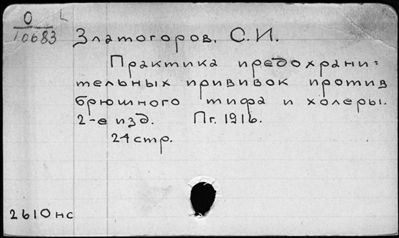 0 L
10683
Златогоров, С.И.
Практика предохрани=
тельных прививок против
брюшного тифа и холеры.
2-е изд. Пг. 1916.
24 стр.
2610 нс